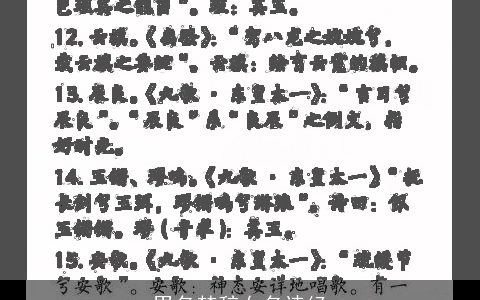 12. 云旗。《离骚》：“驾八龙之婉婉兮，
载云旗之委蛇”。云旗：绘有云霓的旗帜。
13. 辰良。《九歌 · 东皇太一》：“吉日兮
辰良”。“辰良”系“良辰”之倒文，指
好时光。
14. 玉锵、璆鸣。《九歌 · 东皇太一》“抚
长剑兮玉珥，璆锵鸣兮琳琅”。
玉锵锵。璆（音求）：美玉。
15. 安歌。《九歌 · 东皇太一》：“疏缓节
兮安歌”。安歌：神态安详地唱歌。有一